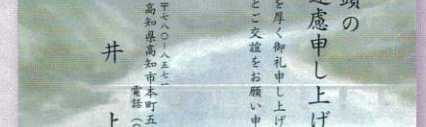 頭の
遠慮申し上げ
を厚く御礼申し上げ
とご交誼をお願い申
〒七八〇―八五七一
高知県高知市本町五
電話(〇
井上